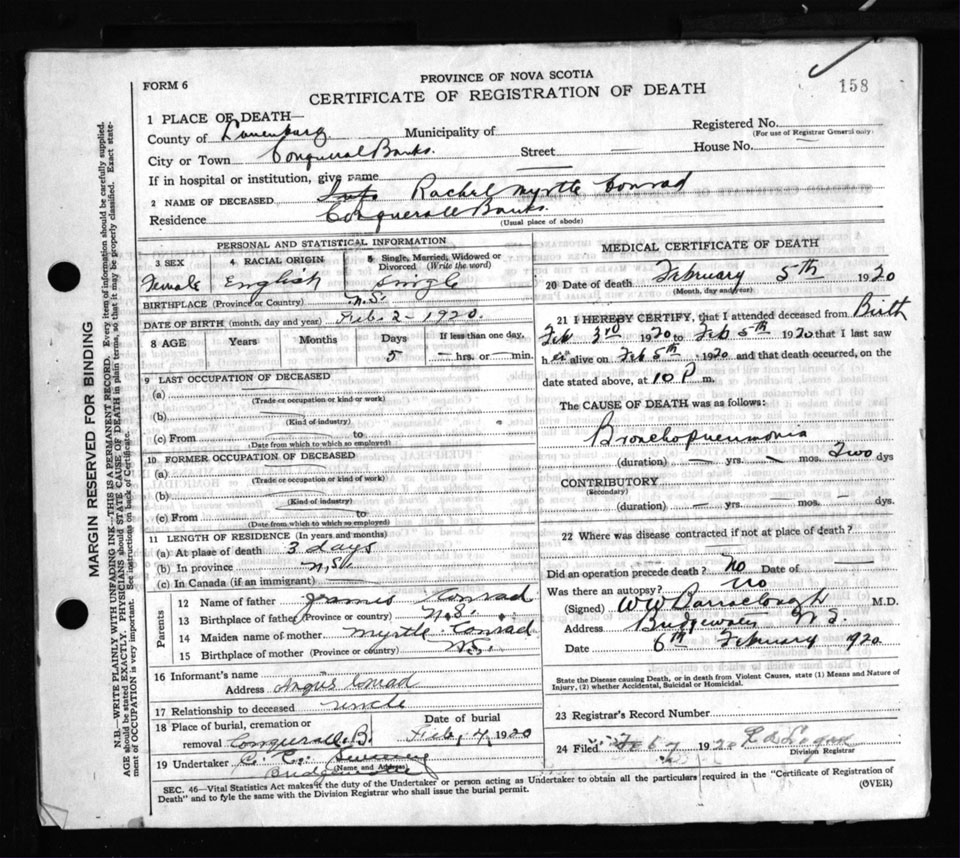 PROVINCE OF NOVA SCOTIA
FORM 6
CERTIFICATE OF REGISTRATION OF DEATH
158
1 PLACE OF DEATH—
County of Lunenburg Municipality of Registered No.
(For use of Registrar General only)
City or Town Conqueral Banks. Street House No.
If in hospital or institution, give name
2 NAME OF DECEASED Rachel Myrtle Conrad
Residence Conquerall Banks.
(Usual place of abode)
PERSONAL AND STATISTICAL INFORMATION
3 SEX Female
4 RACIAL ORIGIN English
5 Single, Married, Widowed or Divorced (Write the word) Single
BIRTHPLACE (Province or Country) N.S.
DATE OF BIRTH (month, day and year) Feb. 2 - 1920.
8 AGE Years Months Days 5 If less than one day, — hrs. or — min.
9 LAST OCCUPATION OF DECEASED
(a)
(Trade or occupation or kind or work)
(b)
(Kind of industry)
(c) From to
(Date from which to which so employed)
10 FORMER OCCUPATION OF DECEASED
(a)
(Trade or occupation or kind of work)
(b)
(Kind of industry)
(c) From to
(Date from which to which so employed)
11 LENGTH OF RESIDENCE (In years and months)
(a) At place of death 3 days
(b) In province N.S.
(c) In Canada (if an immigrant)
Parents
12 Name of father James Conrad
13 Birthplace of father (Province or country) N.S.
14 Maiden name of mother Myrtle Conrad
15 Birthplace of mother (Province or country) N.S.
16 Informant's name
Address Angus Conrad
17 Relationship to deceased uncle
18 Place of burial, cremation or Date of burial
removal Conquerall B. Feb, 7, 1920
19 Undertaker
(Name and Address)
Bridgewater
MEDICAL CERTIFICATE OF DEATH
20 Date of death February 5th 1920
(Month, day and year)
21 I HEREBY CERTIFY, that I attended deceased from Birth
Feb 3rd 1920 to Feb 5th 1920 that I last saw
her alive on Feb 5th 1920 and that death occurred, on the
date stated above, at 10 P m.
The CAUSE OF DEATH was as follows:
Bronchopneumonia
(duration) — yrs. — mos. Two dys
CONTRIBUTORY
(Secondary)
(duration) — yrs. — mos. — dys.
22 Where was disease contracted if not at place of death?
Did an operation precede death? No Date of —
Was there an autopsy? No
(Signed) W W M.D.
Address Bridgewater N.S.
Date 6th February 1920
State the Disease causing Death, or in death from Violent Causes, state (1) Means and Nature of Injury, (2) whether Accidental, Suicidal or Homicidal.
23 Registrar's Record Number
24 Filed Feb 7 1920 Logan
Division Registrar
SEC. 46—Vital Statistics Act makes it the duty of the Undertaker or person acting as Undertaker to obtain all the particulars required in the "Certificate of Registration of
Death" and to fyle the same with the Division Registrar who shall issue the burial permit.
(OVER)
MARGIN RESERVED FOR BINDING
N.B.—WRITE PLAINLY WITH UNFADING INK—THIS IS A PERMANENT RECORD. Every item of information should be carefully supplied.
AGE should be stated EXACTLY. PHYSICIANS should STATE CAUSE OF DEATH in plain terms, so that it may be properly classified. Exact statement of OCCUPATION is very important. See instructions on back of Certificate.